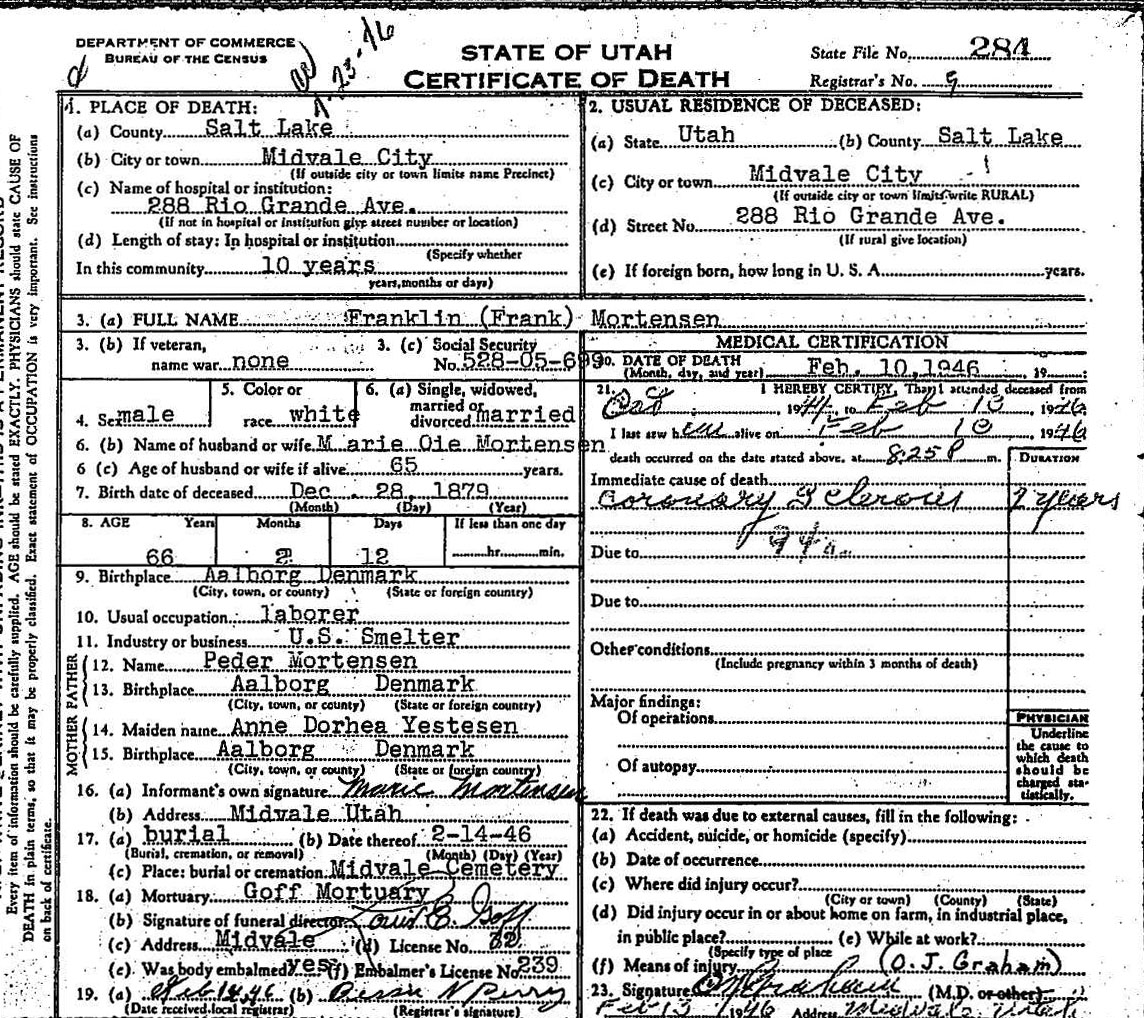 DEPARTMENT OF COMMERCE
BUREAU OF THE CENSUS
23-46
STATE OF UTAH
CERTIFICATE OF DEATH
State File No. 284
Registrar's No. 9
Every item of information should be carefully supplied. AGE should be stated EXACTLY. PHYSICIANS should state CAUSE OF
DEATH in plain terms, so that it may be properly classified. Exact statement of OCCUPATION is very important. See instructions
on back of certificate.
1. PLACE OF DEATH:
(a) County Salt Lake
(b) City or town Midvale City
(If outside city or town limits name Precinct)
(c) Name of hospital or institution:
288 Rio Grande Ave.
(If not in hospital or institution give street number or location)
(d) Length of stay: In hospital or institution
(Specify whether
In this community 10 years
years, months or days)
2. USUAL RESIDENCE OF DECEASED:
(a) State Utah (b) County Salt Lake
(c) City or town Midvale City
(If outside city or town limits write RURAL)
(d) Street No. 288 Rio Grande Ave.
(If rural give location)
(e) If foreign born, how long in U. S. A. years.
3. (a) FULL NAME Franklin (Frank) Mortensen
3. (b) If veteran, 3. (c) Social Security
name war none No. 528-05-699
4. Sex male
5. Color or
race white
6. (a) Single, widowed,
married or
divorced married
6. (b) Name of husband or wife M arie Oie Mortensen
6 (c) Age of husband or wife if alive 65 years.
7. Birth date of deceased Dec. 28, 1879
(Month) (Day) (Year)
8. AGE Years Months Days If less than one day
66 2 12 hr. min.
9. Birthplace Aalborg Denmark
(City, town, or county) (State or foreign country)
10. Usual occupation laborer
11. Industry or business U.S. Smelter
FATHER
12. Name Peder Mortensen
13. Birthplace Aalborg Denmark
(City, town, or county) (State or foreign country)
MOTHER
14. Maiden name Anne Dorhea Yestesen
15. Birthplace Aalborg Denmark
(City, town, or county) (State or foreign country)
16. (a) Informant's own signature Marie Mortensen
(b) Address Midvale Utah
17. (a) burial (b) Date thereof 2-14-46
(Burial, cremation, or removal) (Month) (Day) (Year)
(c) Place: burial or cremation Midvale Cemetery
18. (a) Mortuary Goff Mortuary
(b) Signature of funeral director Louis B. Goff
(c) Address Midvale (d) License No. 32
(e) Was body embalmed? yes (f) Embalmer's License No 239
19. (a) Feb 14, 46 (b) Bessie N Perry
(Date received local registrar) (Registrar's signature)
MEDICAL CERTIFICATION
20. DATE OF DEATH
(Month, day, and year) Feb. 10,1946 19
21. I HEREBY CERTIFY, That I attended deceased from
Oct 1941, to Feb 10 1946
I last saw h im alive on Feb 10 1946
death occurred on the date stated above, at 8:25 P m.
DURATION
Immediate cause of death
Coronary Sclerosis 2 years
94a
Due to
Due to
Other conditions
(Include pregnancy within 3 months of death)
Major findings:
Of operations
Of autopsy
PHYSICIAN
Underline
the cause to
which death
should be
charged sta-
tistically.
22. If death was due to external causes, fill in the following:
(a) Accident, suicide, or homicide (specify)
(b) Date of occurrence
(c) Where did injury occur?
(City or town) (County) (State)
(d) Did injury occur in or about home on farm, in industrial place,
in public place? (e) While at work?
(Specify type of place
(f) Means of injury (O. J. Graham)
23. Signature O J Graham (M.D. or other)
Feb 13 1946 Address Midvale Utah